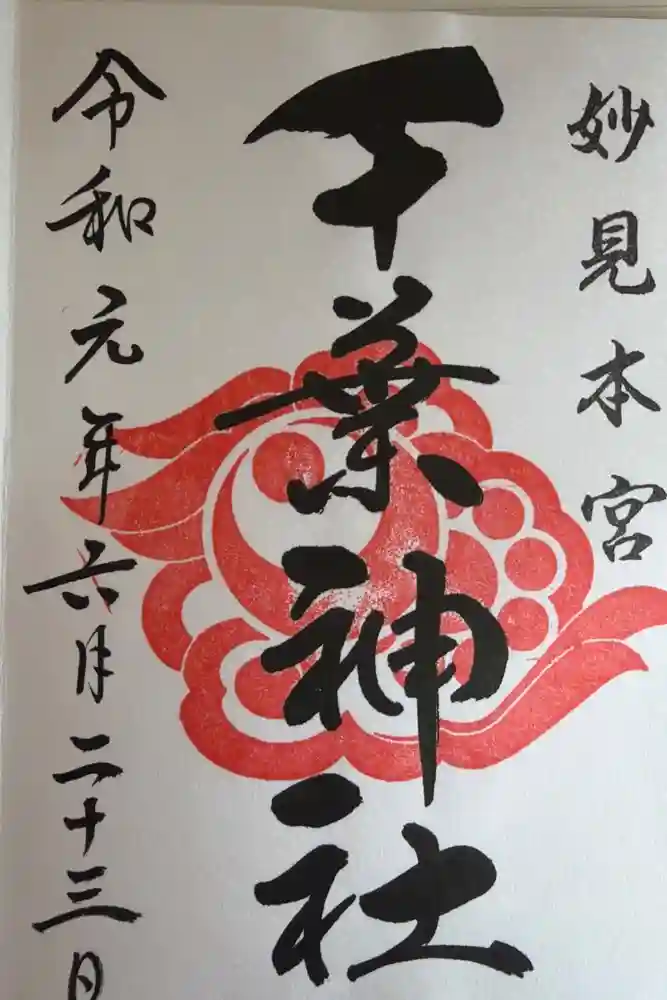 妙見本宮
千葉神社
令和元年六月二十三日